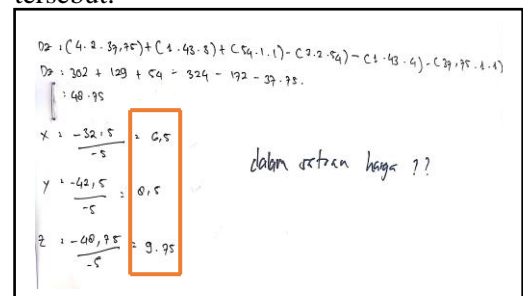 tersebut.
Dz : (4. 2. 37,75) + (1. 43. 3) + (54. 1. 1) - (3. 2. 54) - (1. 43. 4) - (37,75. 1. 1)
Dz : 302 + 129 + 54 - 324 - 172 - 37.75.
: 48.75
x : -32,5 / -5 = 6,5
y : -42,5 / -5 : 8,5
z : -48,75 / -5 = 9.75
dalam satuan harga ??